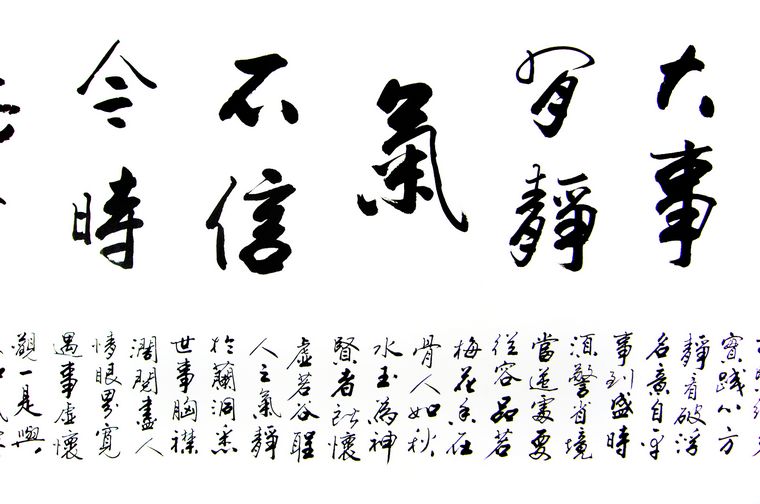 大事
有靜
氣
不信
今時
實踐八方
靜看破浮
名意自平
事到盛時
須警省境
當逆處要
從容品若
梅花香在
骨人如秋
水玉為神
賢者此懷
虛若谷聖
人之氣靜
於蘭洞悉
世事胸襟
濶閱盡人
情眼界寬
遇事虛懷
觀一是與